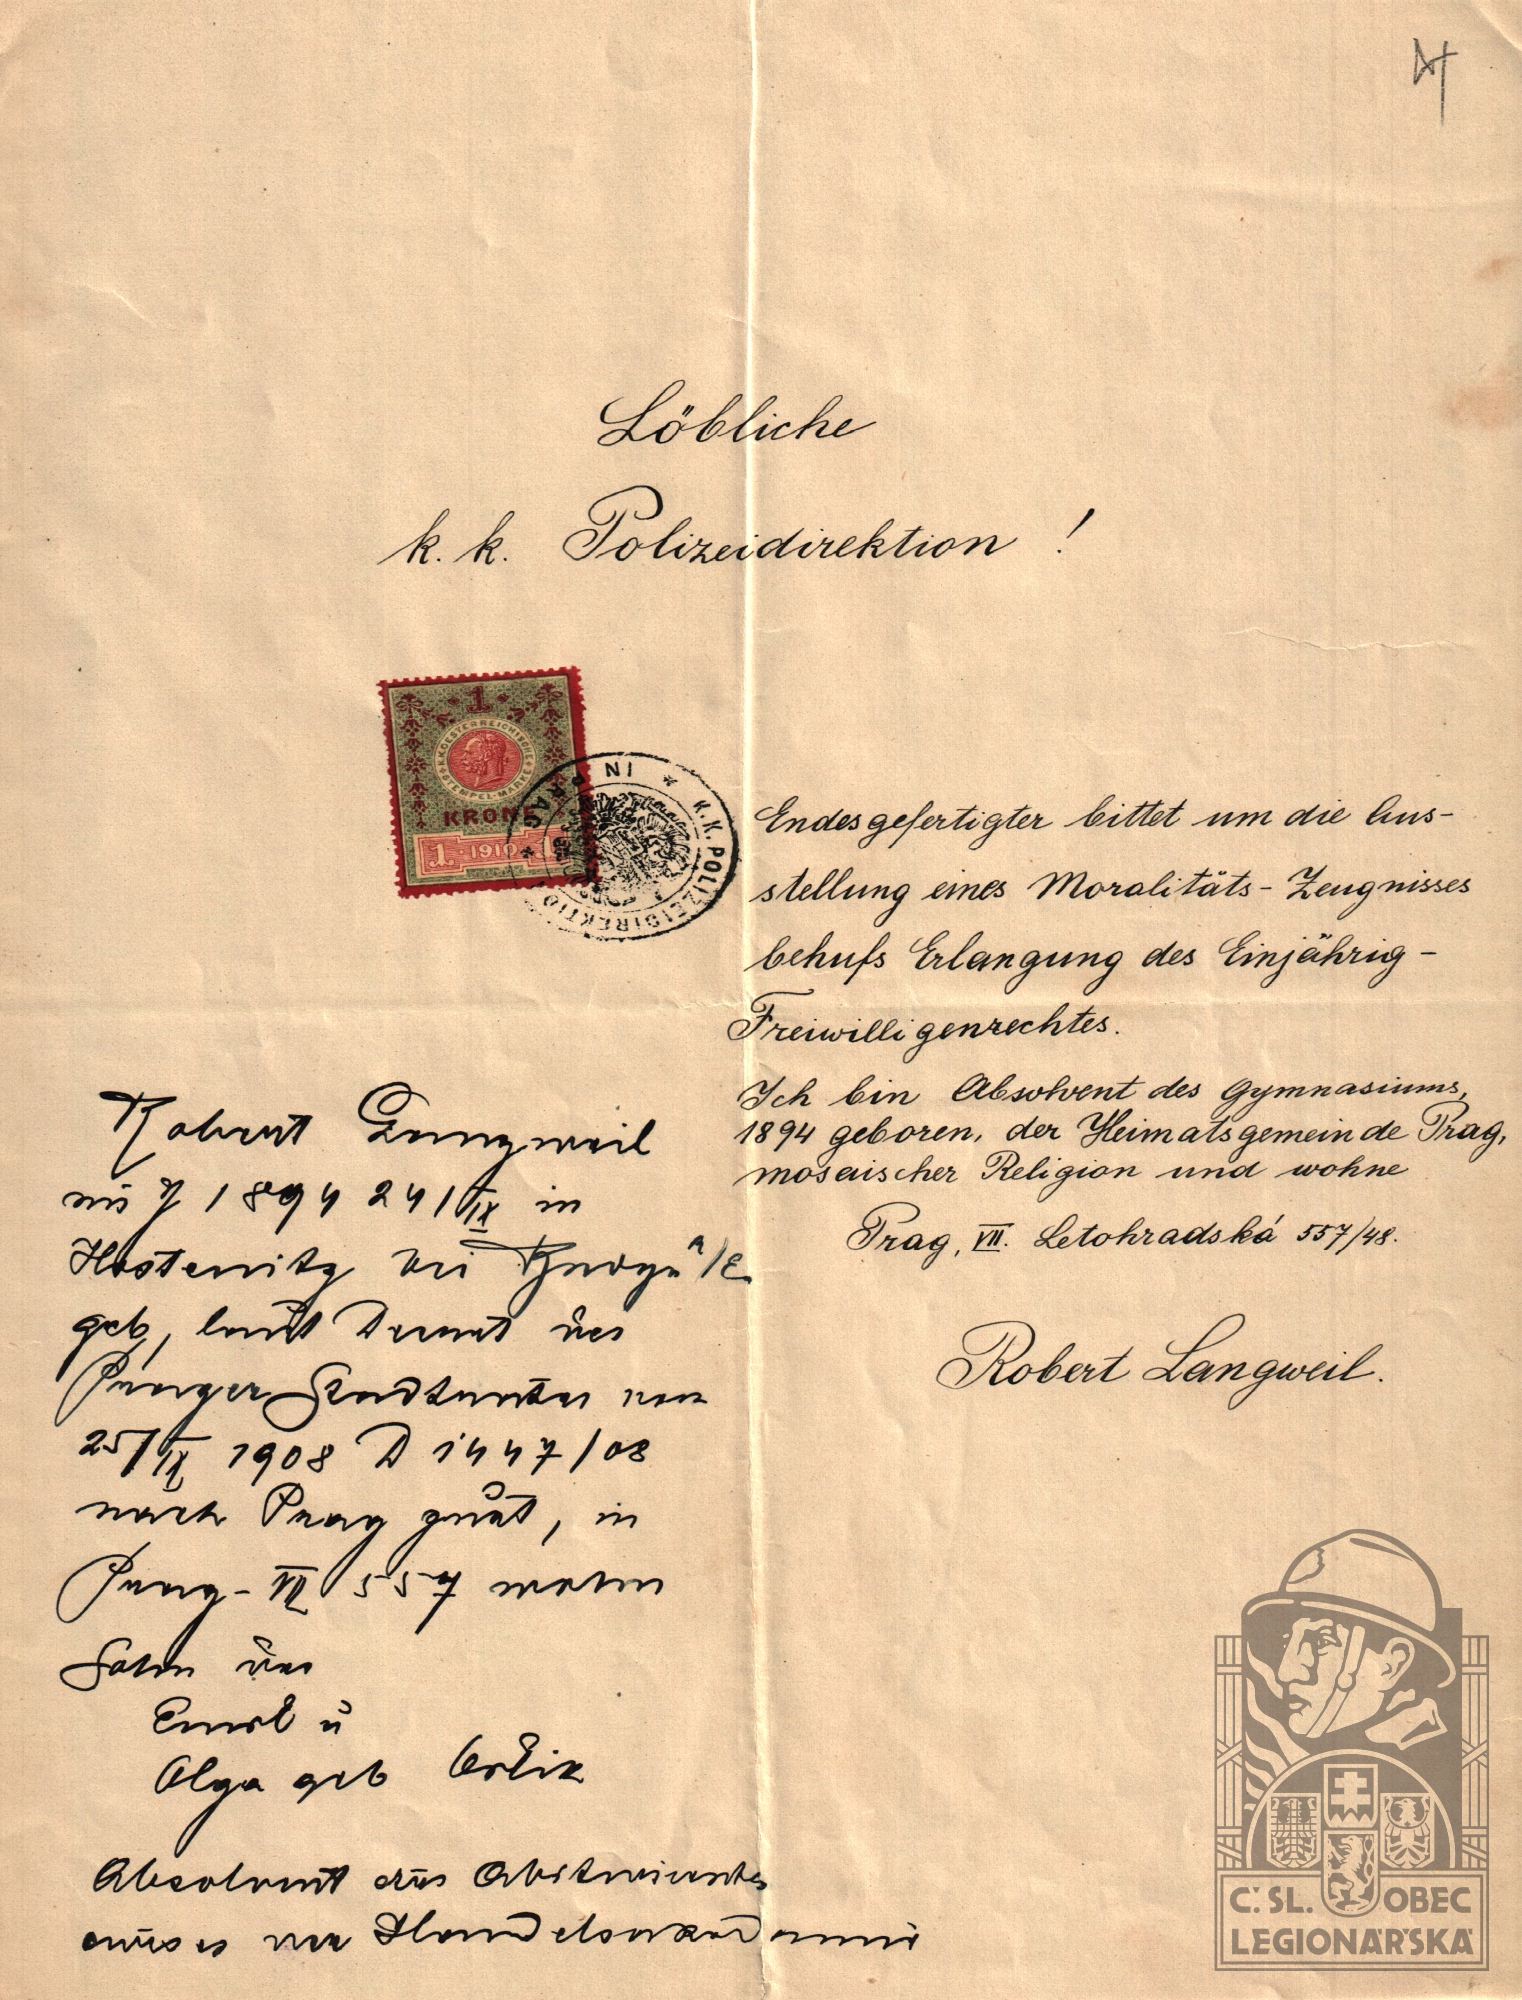 Löbliche
k. k. Polizeidirektion !
1
K.K. OESTERREICHISCHE STEMPEL-MARKE
KRONE
1 1910 1
K. K. POLIZEIDIREKTION * IN PRAG *
Endesgefertigter bittet um die Aus-
stellung eines Moralitäts-Zeugnisses
behufs Erlangung des Einjährig-
Freiwilligenrechtes.
Ich bin Absolvent des Gymnasiums,
1894 geboren, der Heimatsgemeinde Prag,
mosaischer Religion und wohne
Prag, VII. Letohradská 557/48.
Robert Langweil.
Robert Langweil
1894 24/IX in
Hostenitz bei a/E
geb, laut Decret des
Prager Stadtrates vom
25/IX 1908 D 1447/08
nach Prag zust, in
Prag-VII 557 wohn
Sohn des
Emil u
Olga geb Orlik
Absolvent des Abiturienten
curses der Handelsakademie
Č. SL. OBEC
LEGIONÁŘSKÁ